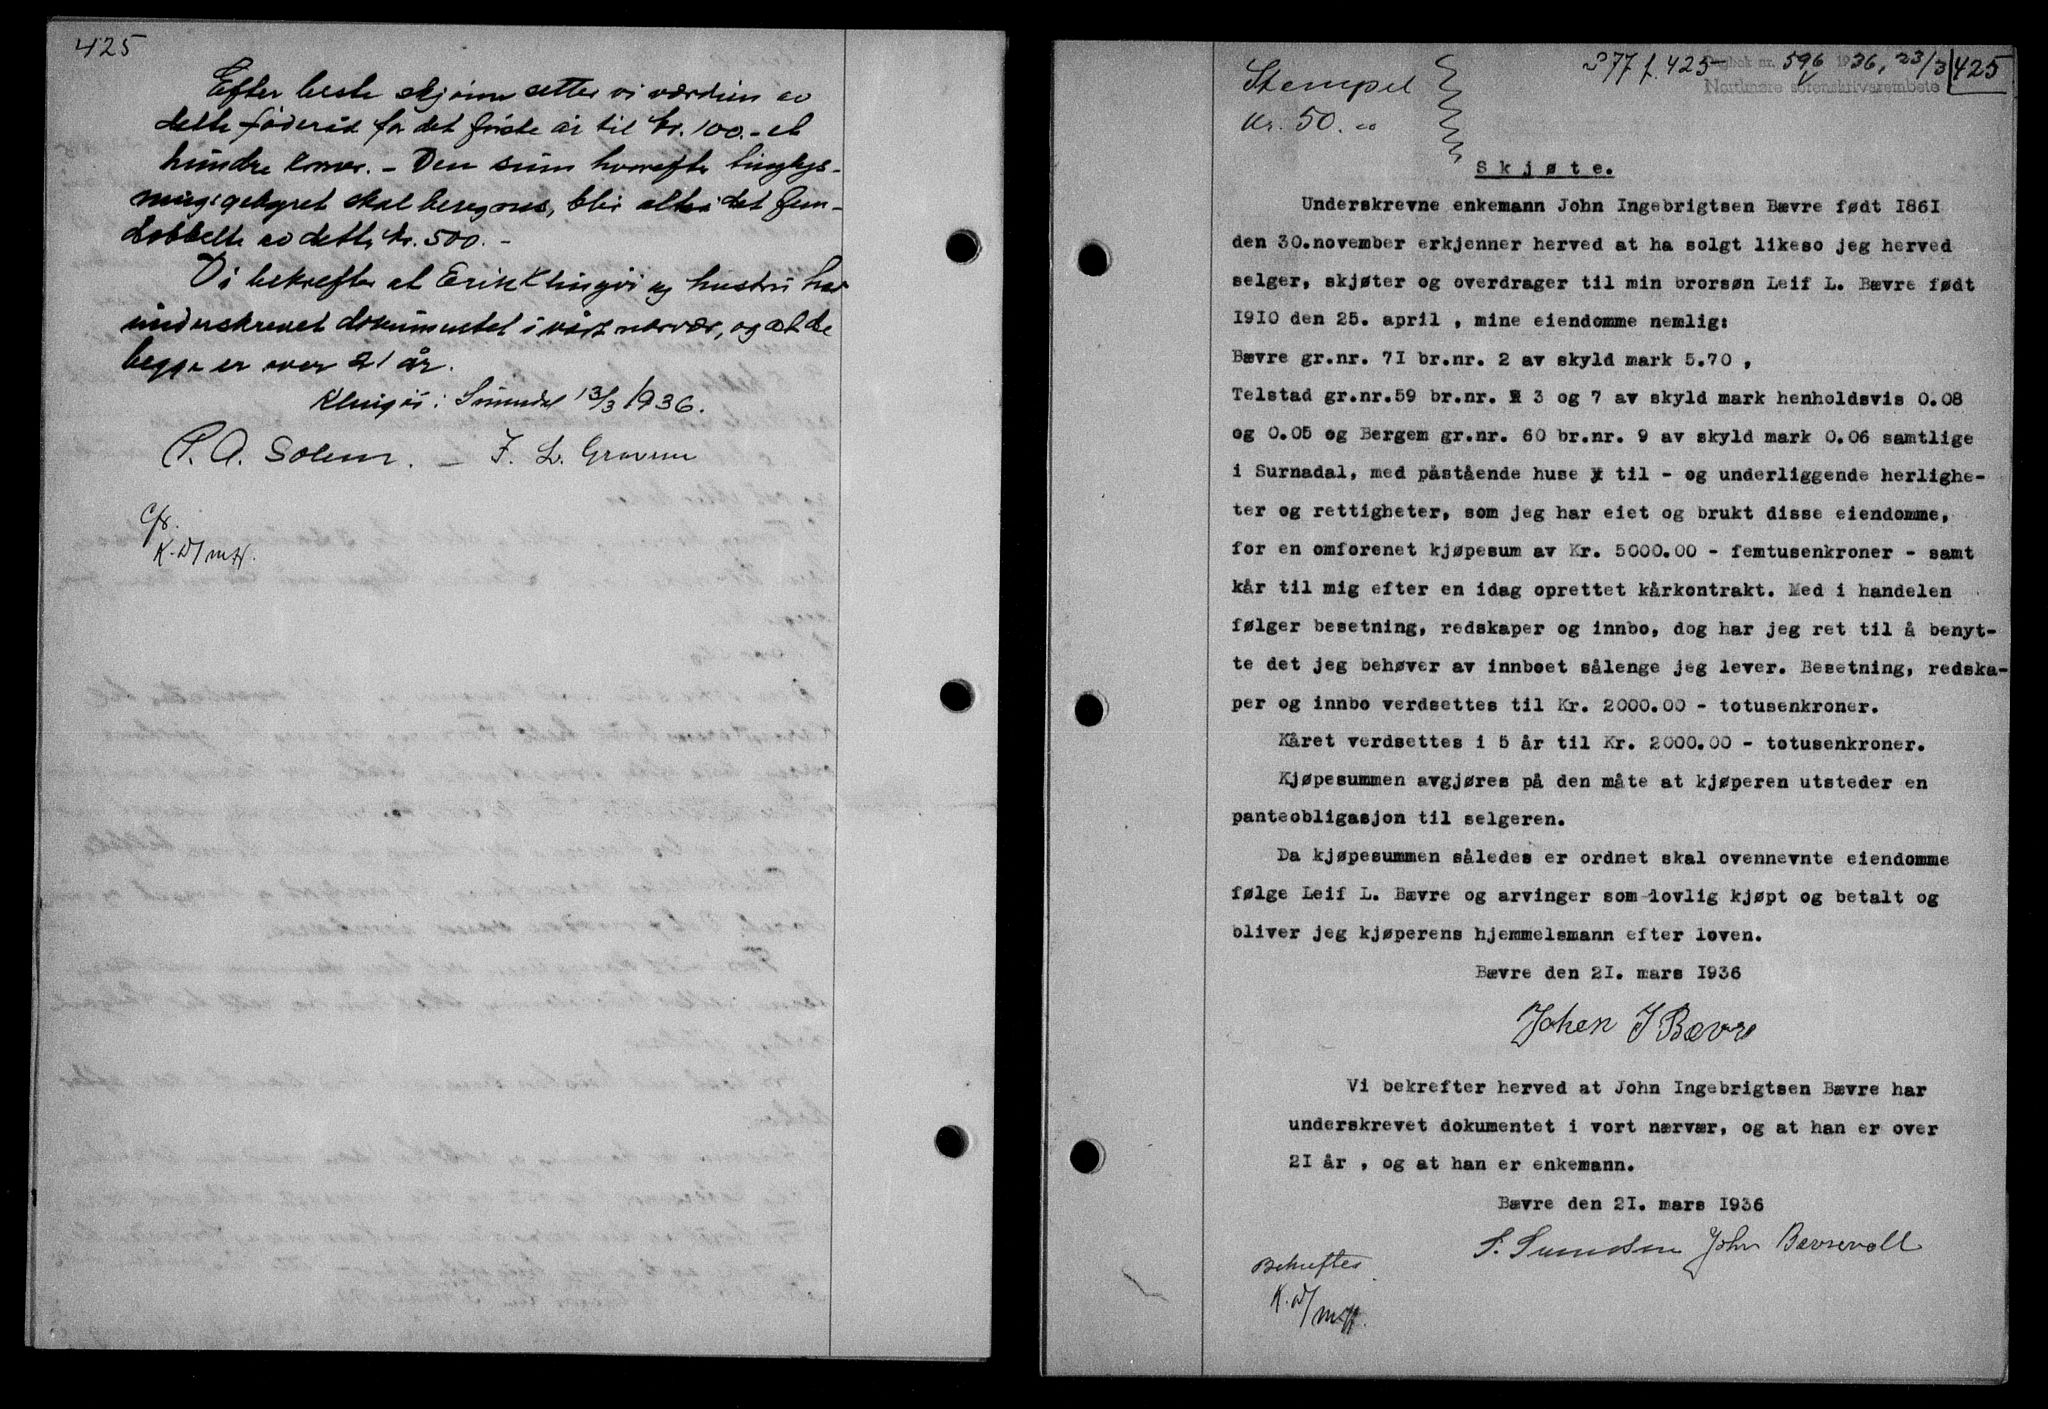 425
Efter beste skjønn setter vi værdien av
dette føderåd for det første år til kr. 100.- et
hundre kroner. - Den sum hvorefter tinglys-
ningsgebyret skal beregnes, blir altså det fem-
dobbelte av dette kr. 500.-
Vi bekrefter at Erik Klingøi og hustru har
underskrevet dokumentet i vårt nærvær, og at de
begge er over 21 år.
Klingøi i Sunndal 13/3 1936.
P. A. Solem. - F. L. Gravem
K. W/
Stempel
Kr. 50.00
377 f. 425
Dagbok nr. 596 1936, 23/3
425
Nordmøre sorenskriverembete
Skjøte.
Underskrevne enkemann John Ingebrigtsen Bævre født 1861
den 30.november erkjenner herved at ha solgt likeso jeg herved
selger, skjøter og overdrager til min brorsøn Leif L. Bævre født
1910 den 25. april , mine eiendomme nemlig:
Bævre gr.nr. 71 br.nr. 2 av skyld mark 5.70 ,
Telstad gr.nr.59 br.nr. 3 og 7 av skyld mark henholdsvis 0.08
og 0.05 og Bergem gr.nr. 60 br.nr. 9 av skyld mark 0.06 samtlige
i Surnadal, med påstående huse til - og underliggende herlighe-
ter og rettigheter, som jeg har eiet og brukt disse eiendomme,
for en omforenet kjøpesum av Kr. 5000.00 - femtusenkroner - samt
kår til mig efter en idag oprettet kårkontrakt. Med i handelen
følger besetning, redskaper og innbo, dog har jeg ret til å benyt-
te det jeg behøver av innboet sålenge jeg lever. Besetning, redska-
per og innbo verdsettes til Kr. 2000.00 - totusenkroner.
Kåret verdsettes i 5 år til Kr. 2000.00 - totusenkroner.
Kjøpesummen avgjøres på den måte at kjøperen utsteder en
panteobligasjon til selgeren.
Da kjøpesummen således er ordnet skal ovennevnte eiendomme
følge Leif L. Bævre og arvinger som lovlig kjøpt og betalt og
bliver jeg kjøperens hjemmelsmann efter loven.
Bævre den 21. mars 1936
Johen I Bævre
Vi bekrefter herved at John Ingebrigtsen Bævre har
underskrevet dokumentet i vort nærvær, og at han er over
21 år , og at han er enkemann.
Bævre den 21. mars 1936
John Bævrevoll
Bekreftes
K. W/